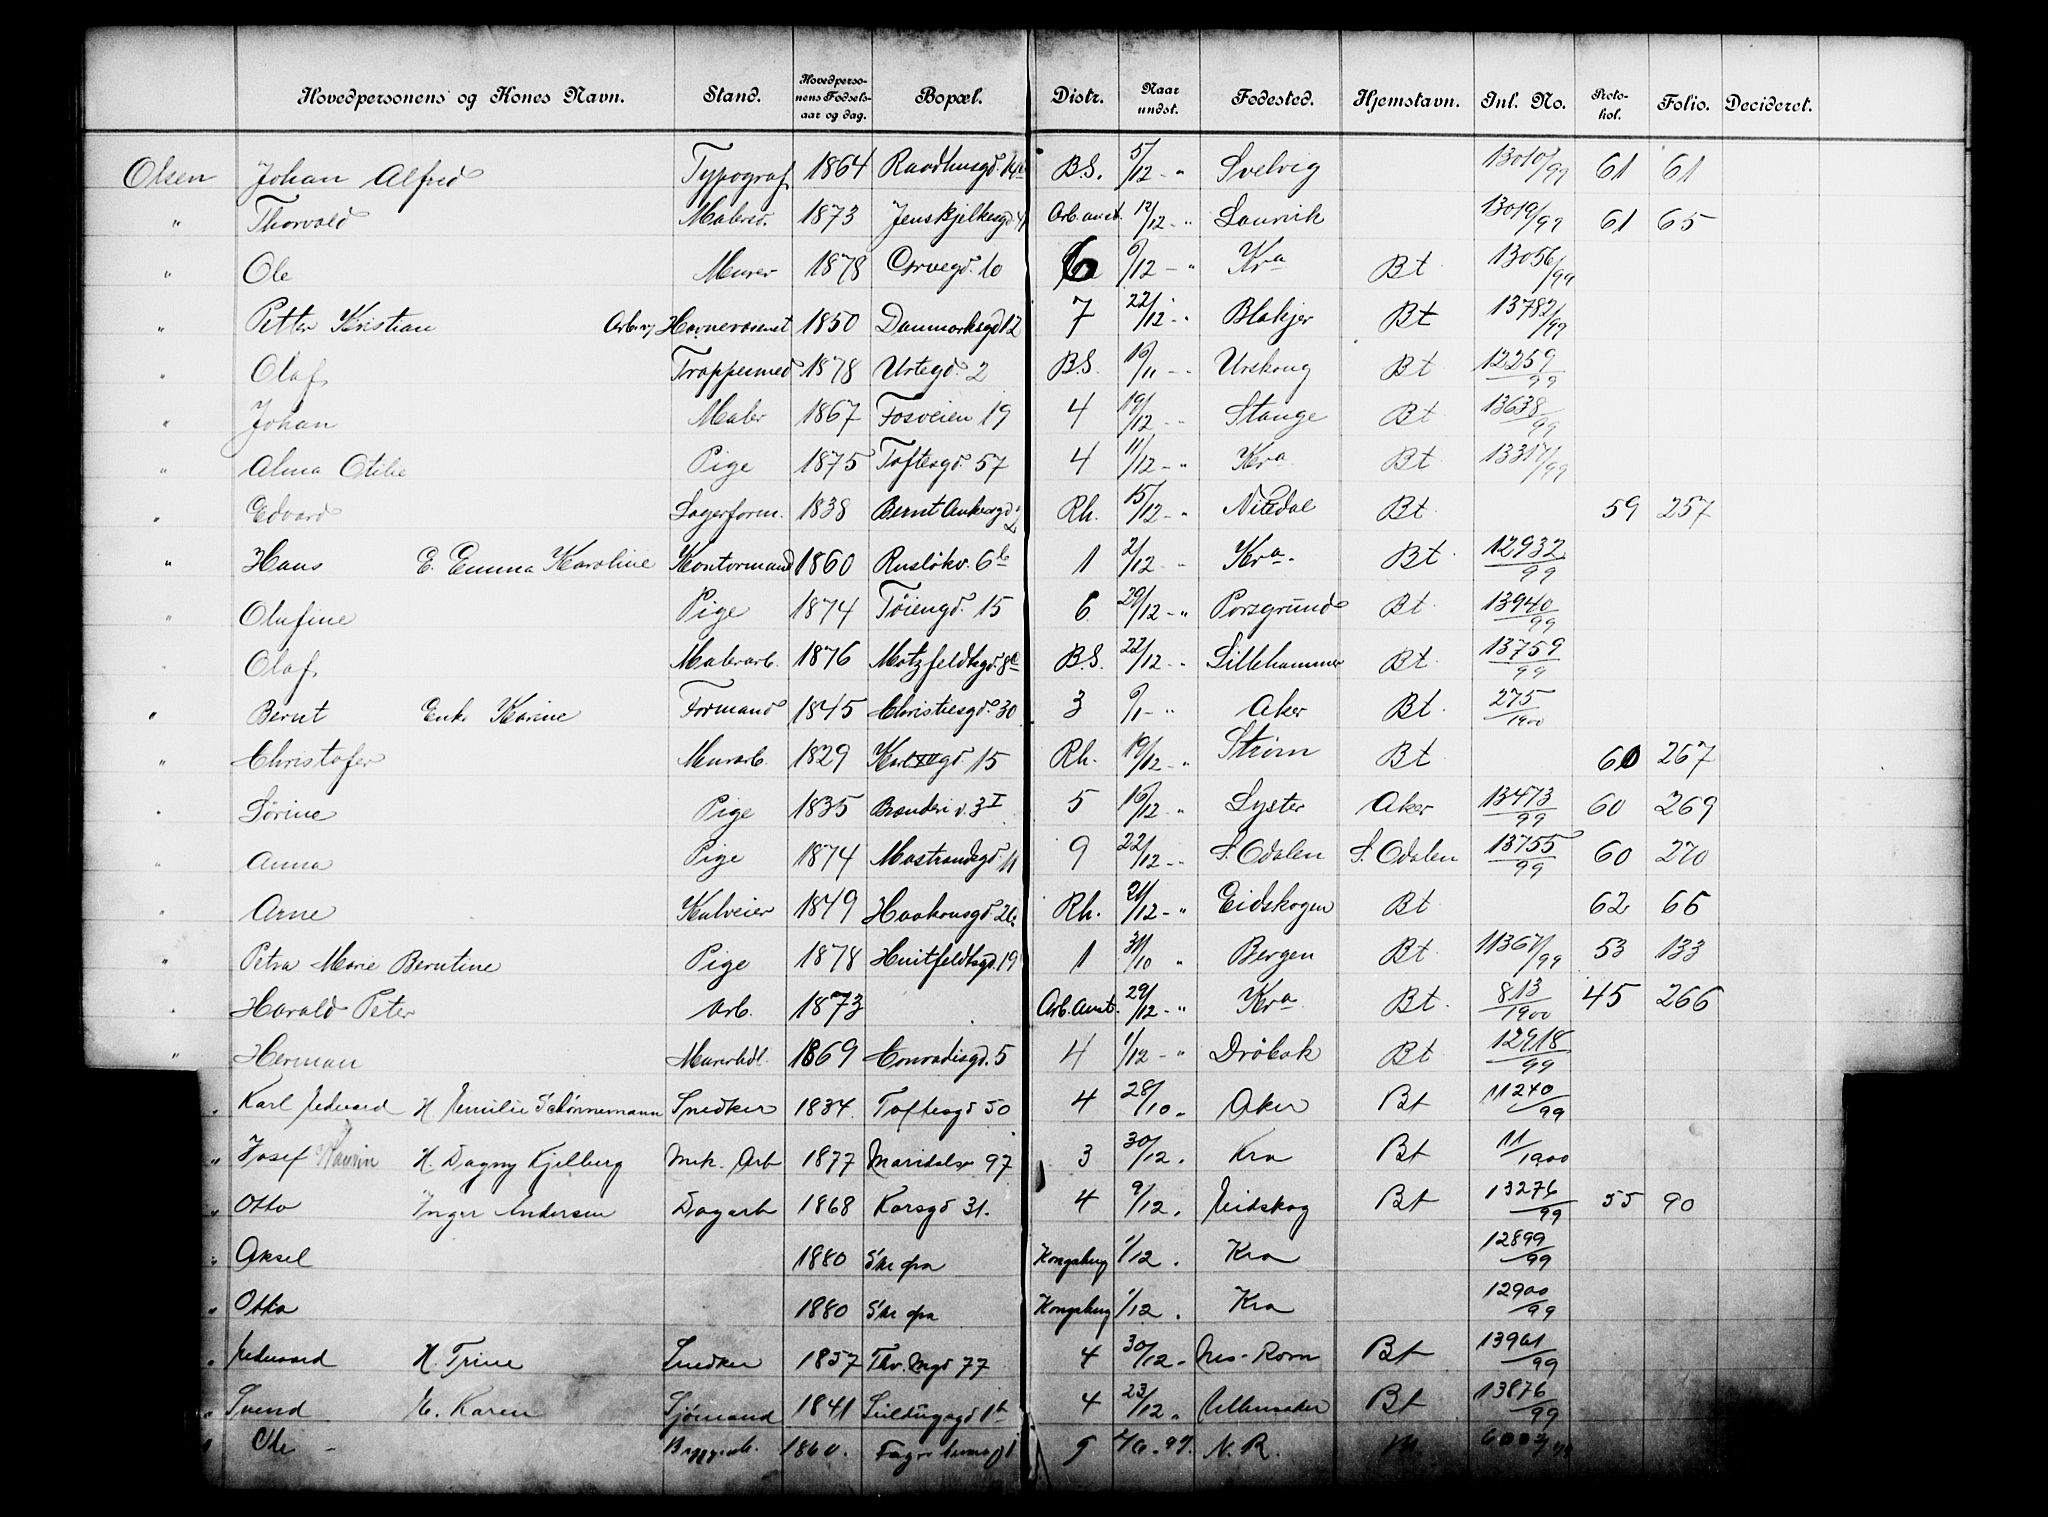 Hovedpersonens og Kones Navn. Stand. Hovedpersonens Fødselsaar og dag. Bopæl. Distr. Naar undst. Fødested. Hjemstavn. Inl. No. Protokol. Folio. Decideret.
Olsen Johan Alfred Typograf 1864 Raadhusgd. B.S. 5/12 - " Svelvig 13010/99 61 61
" Thorvald Malersv. 1873 Jens Bjelkesgd Arb.anst. 12/12 - " Laurvik 13019/99 61 65
" Ole Murer 1878 10 6 6/12 - " Kra Bt 13056/99
" Petter Kristian Arb. v/ Havnevæsenet 1850 Danmarksgd 12 7 22/12 - " Blakjer Bt 13782/99
" Olaf Trappesmed 1878 Urtegd. 2 B.S. 16/11 - " Urskoug Bt 12259/99
" Johan Maler 1867 Fosveien 19 4 19/12 - " Stange Bt 13638/99
" Alma Otilie Pige 1875 Toftesgd. 57 4 11/12 - " Kra Bt 13317/99
" Edvard Lagerform. 1838 Bernt Ankersgd Rh. 15/12 - " Nitedal Bt 59 257
" Hans E. Emma Karoline Kontormand 1860 Rusløkv. 6b 1 2/12 - " Kra Bt 12932/99
" Olufine Pige 1874 Tøiengd. 15 6 29/12 - " Porsgrund Bt 13940/99
" Olaf Malerarb. 1876 Motzfeldtsgd. 8c B.S. 22/12 - " Lillehammer Bt 13759/99
" Bernt Enke Karine Formand 1845 Christiesgd. 30 3 6/1 - " Aker Bt 275/1900
" Christofer Murarb. 1829 Karl XII gd 15 Rh. 19/12 - " Strøm Bt 60 267
" Sørine Pige 1835 Brænderiv. 3 I 5 16/12 " Lyster Aker 13473/99 60 269
" Anna Pige 1874 Mastrandsgd 11 9 22/12 - " S. Odalen S. Odalen 13755/99 60 270
" Arne Kulveier 1849 Haakonsgd Rh. 21/12 - " Eidskogen Bt 62 66
" Petra Marie Berntine Pige 1878 Huitfeldtsgd. 19 1 31/10 " Bergen Bt 11367/99 53 133
" Harald Peter Arb. 1873 Arb.anst. 29/12 - " Kra Bt. 813/1900 45 266
" Herman 1869 Conradisgd. 5 4 1/12 - " Drøbak Bt 12918/99
" Karl Edvard H Emilie Schønnemann Snedker 1834. Toftesgd 50 4 28/10 " Aker Bt 11240/99
" Josef H. Dagny Kjelberg Mek. Arb 1877 Maridalsv 97 3 30/12 " Kra Bt 11/1900
" Otto Inger Andersen Dagarb 1868 Korsgd 31. 4 9/12 " Eidskog Bt 13276/99 55 90
" Aksel 1880 Kongsberg 1/12 " Kra 12899/99
" Otto 1880 Kongsberg 1/12 " Kra 12900/99
" Edvard H. Trine Snedker 1857 Thv. Mgd 77 4 30/12 " Nes - Rom Bt 13961/99
" Svend H. Karen Sjømand 1841 4 23/12 " Ullensaker Bt 13876/99
" Ole - Byggearb. 1860. 9 N. R.